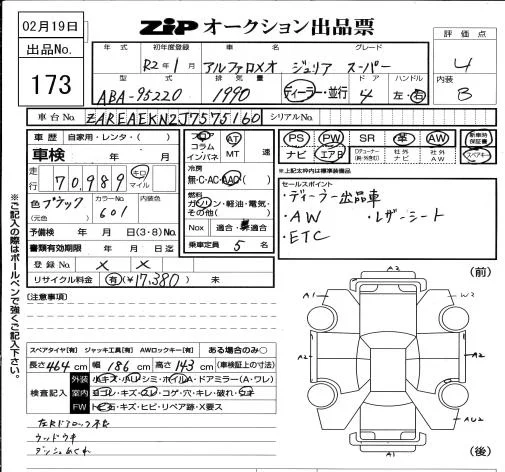 02月19日
ZIP オークション出品票
出品No.
173
年式
初年度登録
車名
グレード
R2年1月
アルファロメオ ジュリア スーパー
評価点
4
内装
B
型式
排気量
ドア
ハンドル
ABA-95220
1990
ディーラー・並行
4
左・右
車台No.
ZAREAEKN2J7575160
シリアルNo.
車歴
自家用・レンタ・( )
車検 年 月
走行
70,989
キロ
マイル
色 ブラック
(元色)
カラーNo.
601
内装色
予備検 年 月 日(3・8)No.
書類有効期限 年 月 日迄
登録No. × ×
リサイクル料金 有(¥17,380) 未
フロア
コラム
インパネ
AT
MT
速
冷房
無・C・AC・AAC
燃料
ガソリン・軽油・電気・
その他( )
Nox 適合・非適合
乗車定員 5 名
PS
PW
SR
革
AW
ナビ
エアB
社外ナビ
社外AW
新車時保証書
スペアキー
※上記太枠内は標準装備品
セールスポイント
・ディーラー出品車
・AW ・レザーシート
・ETC
[注意事項]
スペアタイヤ[有] ジャッキ工具[有] AWロックキー[有] ある場合のみ○
長さ464cm 幅186cm 高さ143cm (車検証上の寸法)
検査記入
外装
小キズ・小U・シミ・ホイルA・ドアミラー(A・ワレ)
室内
ヨゴレ・キズ・スレ・コゲ・穴・キレ・破れ・ウキ
FW
トビ石・キズ・ヒビ・リペア跡・X要ス
ウッドウキ
ダッシュめくれ
※ご記入の際はボールペンで強くご記入下さい。
(前)
A2
A1
A2
A2
AU2
A1
(後)